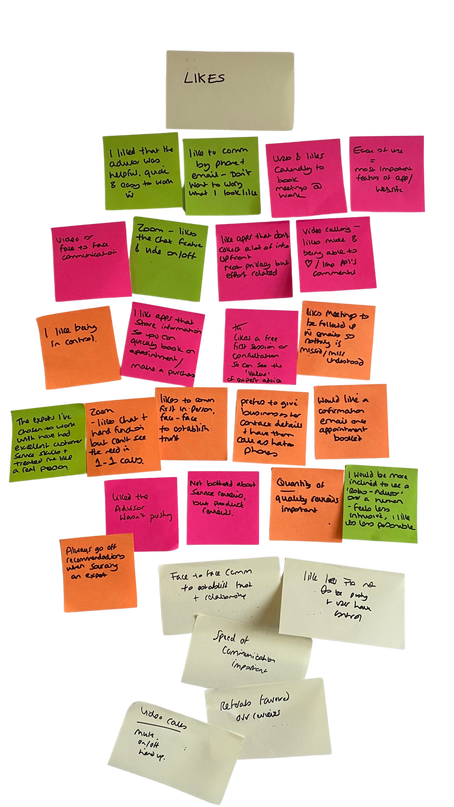 LIKES
I liked that the
advisor was
helpful, quick
& easy to work
w
like to comm
by phone +
email - Don't
want to worry
what I look like
Uses & likes
Calendly to
book
meetings @
work
Ease of use
=
most important
feature of app/
website
Video or
face to face
communication
Zoom - likes
the chat feature
& vide on/off
like apps that dont
collect a lot of info
upfront
not privacy but
effort related
Video calling -
likes mute &
being able to
♡ / like
comments
I like being
in control.
I like apps that
store information
so you can
quickly book an
appointment/
make a purchase
likes a free
first session or
consultation
so can see the
'value'
of expert advice
likes Meetings to
be followed up
in emails so
nothing is
missed/miss
understood
The experts I've
chosen to work
with have had
excellent customer
service skills &
treated me like
a real person
Zoom
- likes chat +
hand function
but can't see
the need in
1-1 calls.
likes to comm
first in person,
face-face
to establish
trust
prefers to give
businesses her
contact details
& have them
call as hates
phones
Would like a
confirmation
email one
appointment
booked
Liked the
Advisor
wasn't pushy
Not bothered about
service reviews,
but product
reviews.
Quantity of
quality reviews
important
I would be more
inclined to use a
'Robo-Advisor'
over a human
- feels less
intrusive, & like
its less personable
Always go off
recommendations
when sourcing
an expert
Face to face comm
to establish trust
+ relationship
like
to be
+ user have
control
Speed of
communication
important
Referals favoured
over reviews
Video calls
mute,
on/off
hand up.